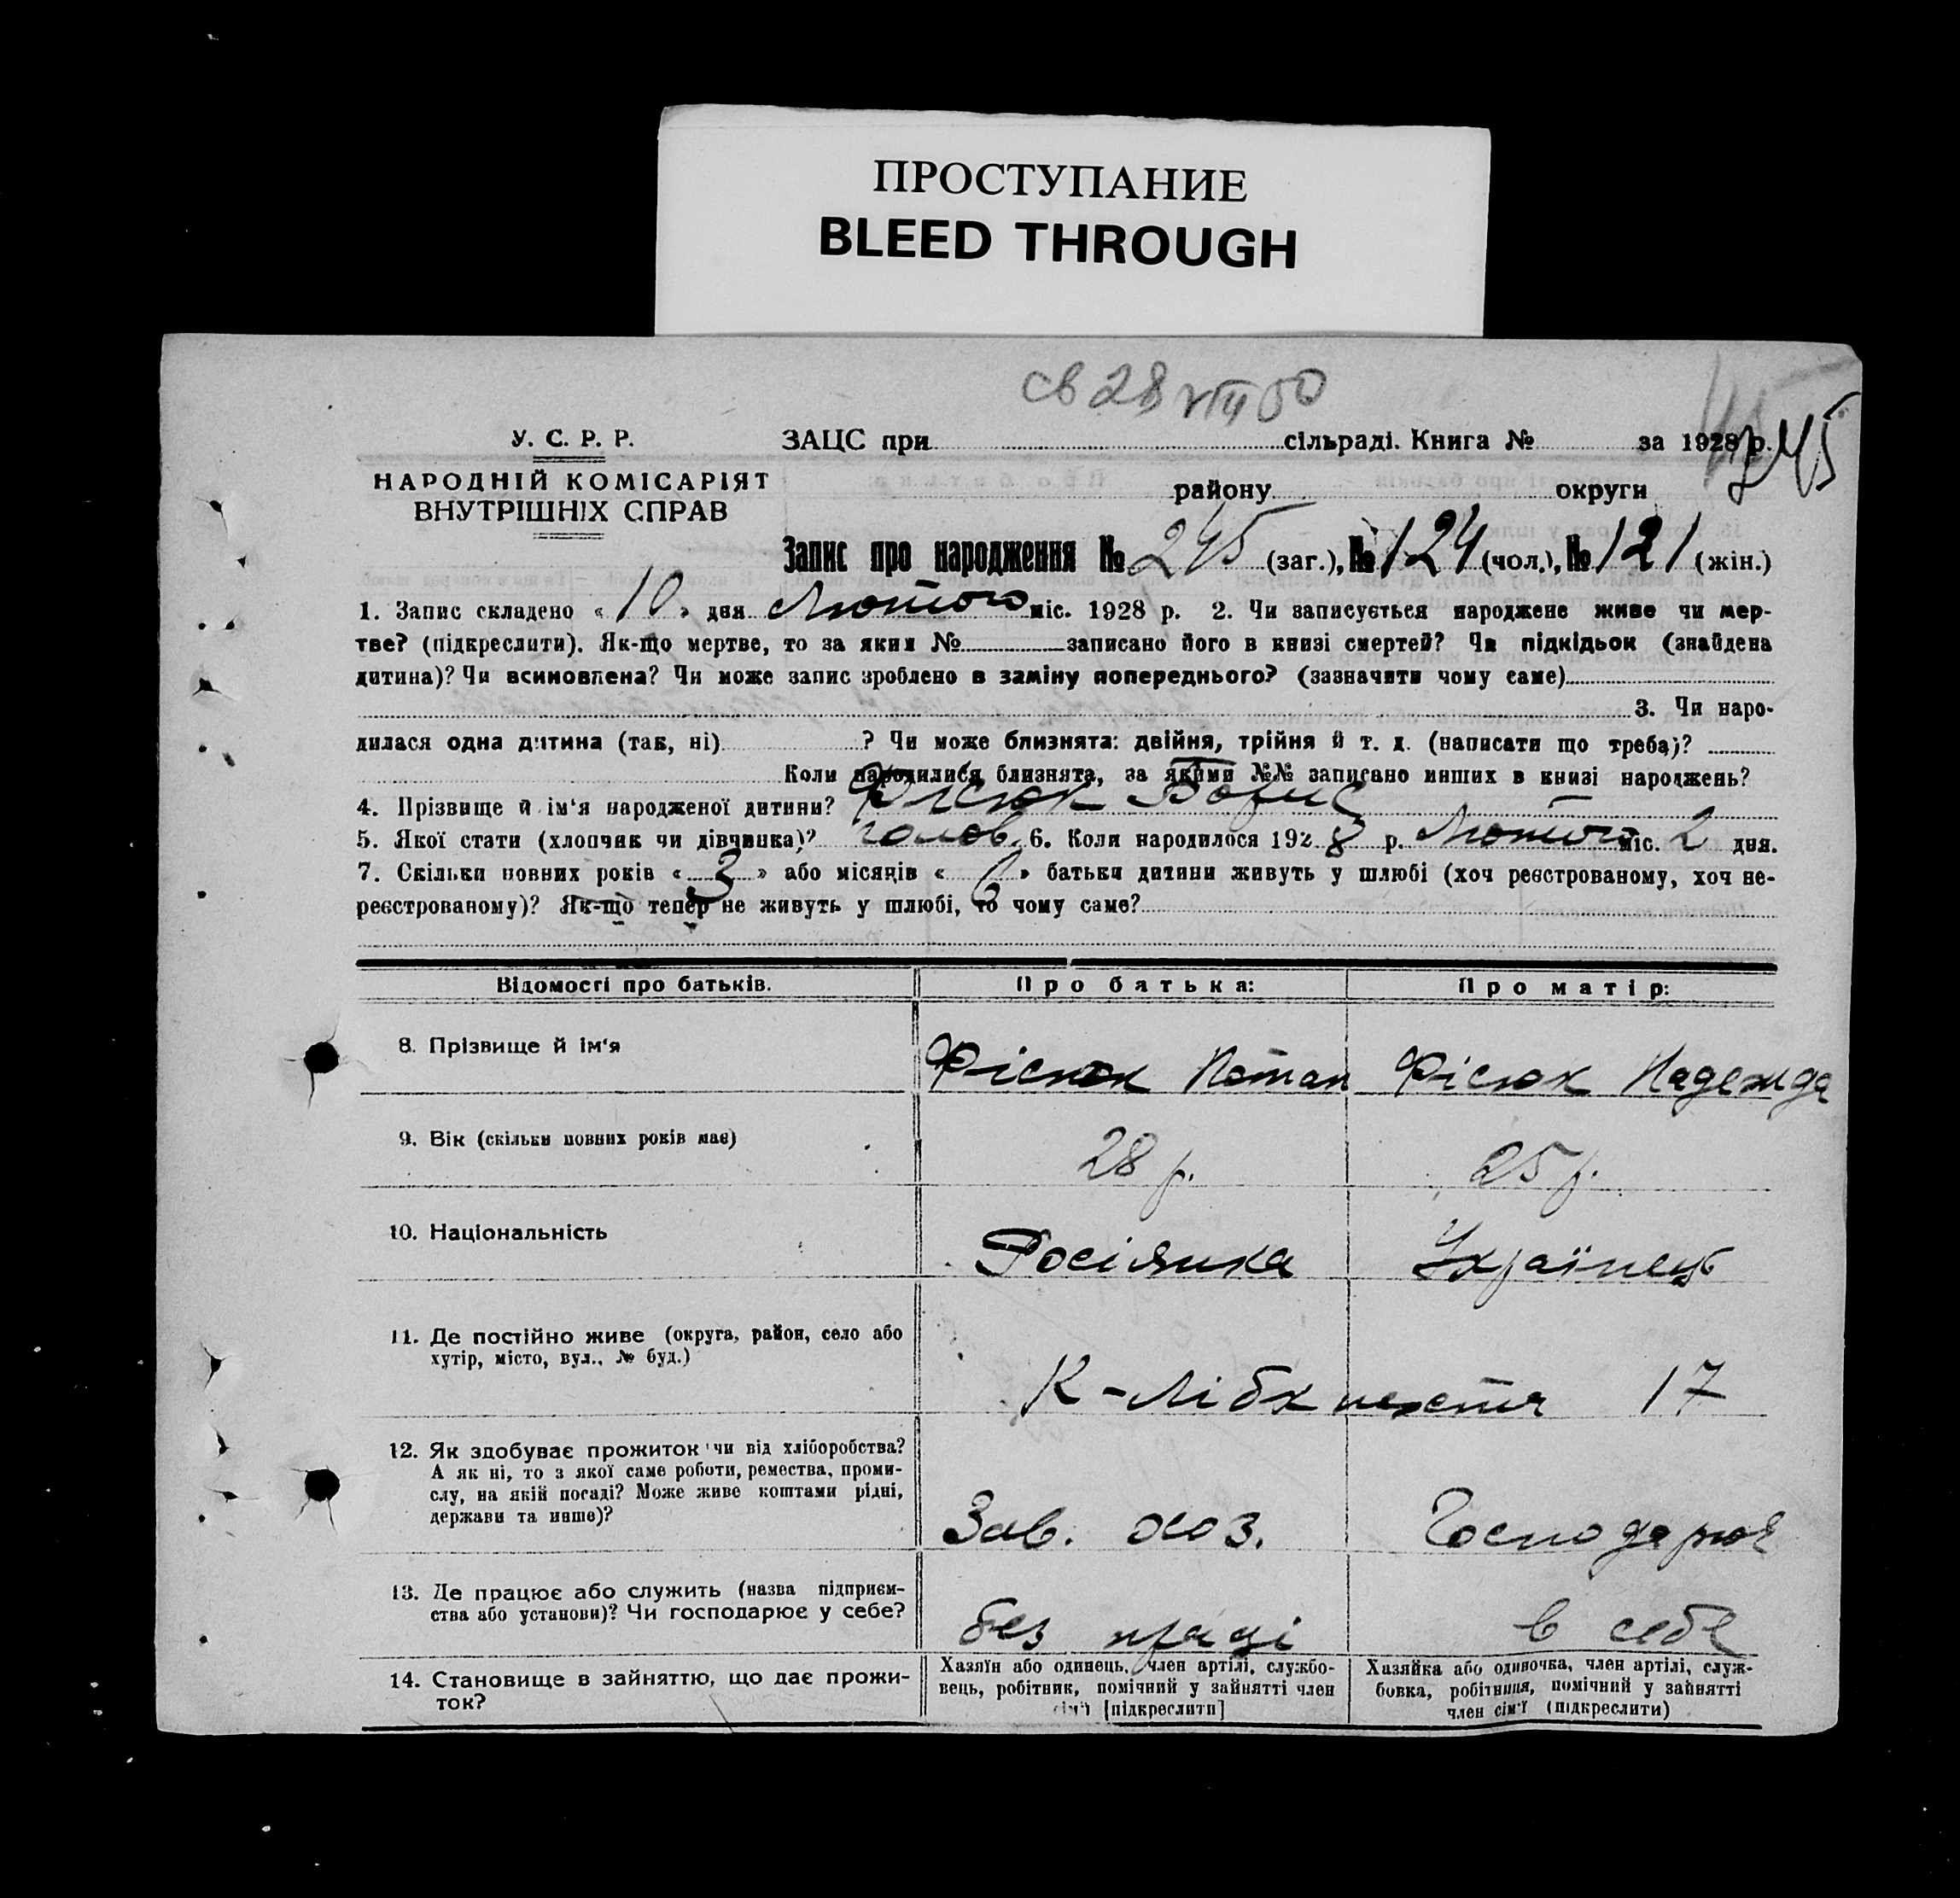 ПРОСТУПАНИЕ
BLEED THROUGH
св 28 VIII 50
У. С. Р. Р.
НАРОДНІЙ КОМІСАРІЯТ
ВНУТРІШНІХ СПРАВ
ЗАЦС при сільраді. Книга № за 1928 р.
245
району округи
Запис про народження № 245 (заг.), № 124 (чол.), № 121 (жін.)
1. Запис складено « 10 » дня Лютого міс. 1928 р. 2. Чи записується народжене живе чи мер-
тве? (підкреслити). Як-що мертве, то за яким № записано його в книзі смертей? Чи підкідьок (знайдена
дитина)? Чи всиновлена? Чи може запис зроблено в заміну попереднього? (зазначити чому саме)
3. Чи наро-
дилася одна дитина (так, ні) ? Чи може близнята: двійня, трійня й т. д. (написати що треба)?
Коли народилися близнята, за якими №№ записано инших в книзі народжень?
4. Прізвище й ім‘я народженої дитини? Фісюк Борис
5. Якої стати (хлопчик чи дівчинка)? чолов. 6. Коли народилося 1928 р. Лютого міс. 2 дня.
7. Скільки повних років « 3 » або місяців « 6 » батьки дитини живуть у шлюбі (хоч реєстрованому, хоч не-
реєстрованому)? Як-що тепер не живуть у шлюбі, то чому саме?
Відомості про батьків. Про батька: Про матір:
8. Прізвище й ім‘я Фісюк Потап Фісюк Надежда
9. Вік (скільки повних років має) 28 р. 25 р.
10. Національність Росіянка Українець
11. Де постійно живе (округа, район, село або
хутір, місто, вул., № буд.)
К-Лібкнехта 17
12. Як здобуває прожиток чи від хліборобства?
А як ні, то з якої саме роботи, ремества, проми-
слу, на якій посаді? Може живе коштами рідні,
держави та инше)?
Зав. хоз. Господарює
13. Де працює або служить (назва підприєм-
ства або установи)? Чи господарює у себе?
без праці в себе
14. Становище в зайняттю, що дає прожи-
ток?
Хазяїн або одинець, член артілі, службо-
вець, робітник, помічний у зайнятті член
сім‘ї [підкреслити]
Хазяйка або одиночка, член артілі, служ-
бовка, робітниця, помічний у зайнятті
член сім‘ї (підкреслити)